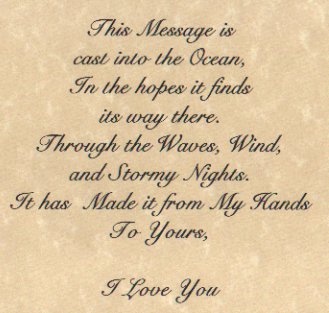 This Message is
cast into the Ocean,
In the hopes it finds
its way there.
Through the Waves, Wind,
and Stormy Nights.
It has Made it from My Hands
To Yours,
I Love You